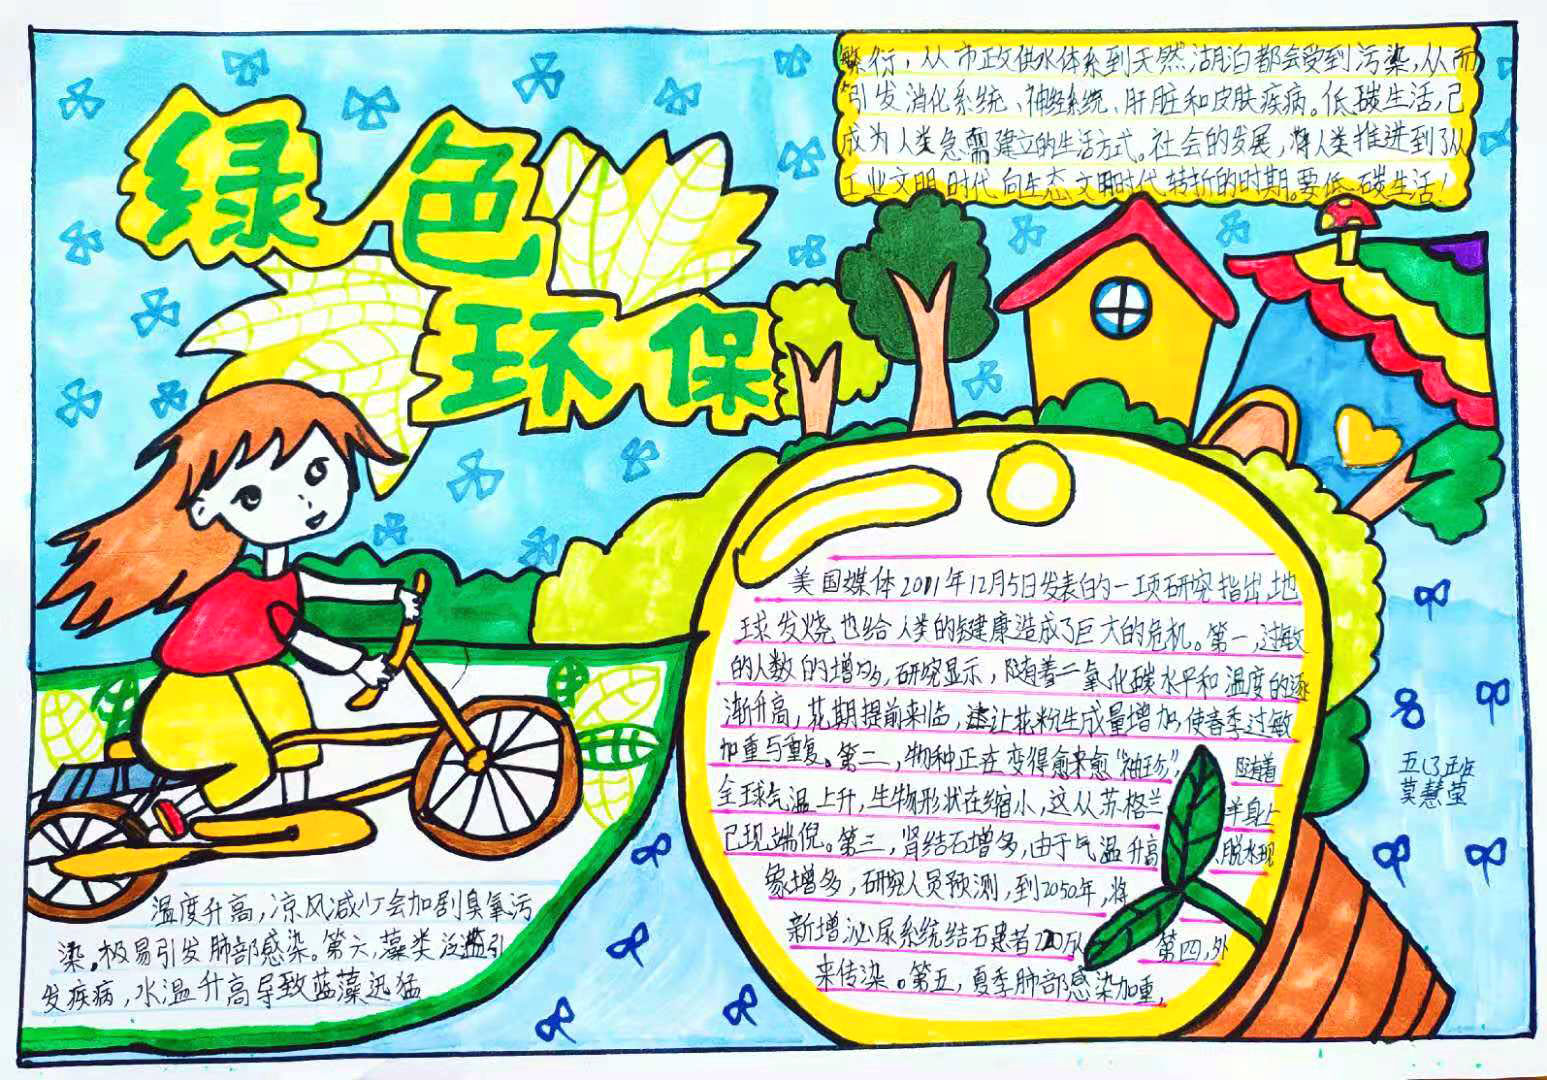 绿色
环保
美国媒体2011年12月5日发表的一项研究指出,地
球发烧也给人类的健康造成了巨大的危机。第一,过敏
的人数的增多,研究显示,随着二氧化碳水平和温度的逐
渐升高,花期提前来临,让花粉生成量增加,使春季过敏
加重与重复。第二,物种正在变得愈来愈“袖珍”,随着
全球气温上升,生物形状在缩小,这从苏格兰羊身上
已现端倪。第三,肾结石增多,由于气温升高,脱水现
象增多,研究人员预测,到2050年,将
新增泌尿系统结石患者220万人 第四,外
来传染。第五,夏季肺部感染加重,
温度升高,凉风减少会加剧臭氧污
染。极易引发肺部感染。第六,藻类泛滥引
发疾病,水温升高导致蓝藻迅猛
繁衍,从市政供水体系到天然湖泊都会受到污染,从而
引发消化系统、神经系统、肝脏和皮肤疾病。低碳生活,已
成为人类急需建立的生活方式。社会的发展,将人类推进到了从
工业文明时代向生态文明时代转折的时期。要低碳生活!
五(3)班
莫慧莹